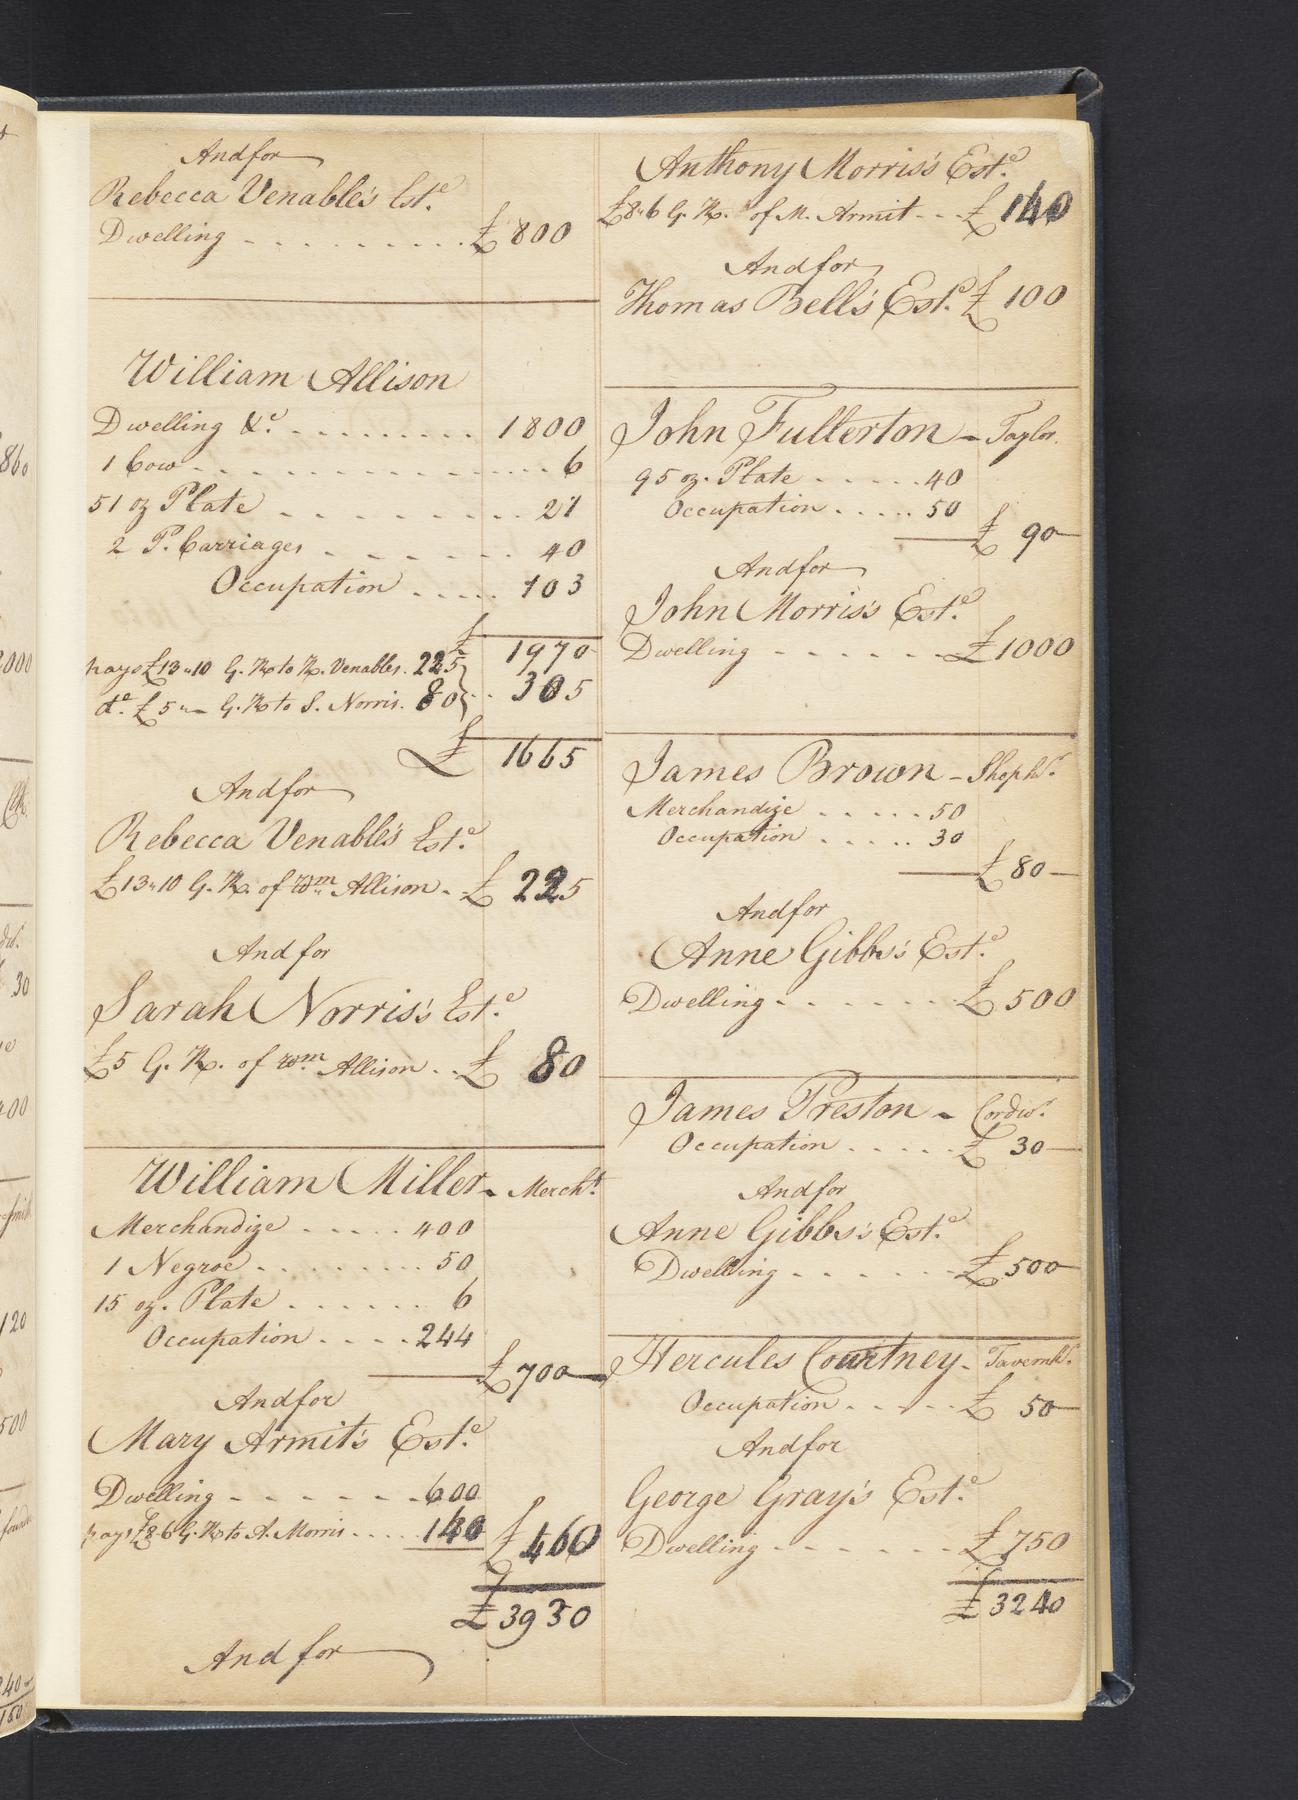 And for
Rebecca Venable's Est.e
Dwelling - - - - - - - - - - £ 800
William Allison
Dwelling &c. - - - - - - - - - 1800
1 Cow - - - - - - - - - - - - - 6
51 oz Plate - - - - - - - - - - 21
2 P. Carriages - - - - - - - 40
Occupation - - - - - 103
£ 1970
pays £13"10 G. R. to R. Venables. 225
d.o £5"- G. R. to S. Norris. 80 } - - 305
£ 1665
And for
Rebecca Venable's Est.e
£13"10 G. R. of Wm Allison - £ 225
And for
Sarah Norris's Est.e
£5 G. R. of Wm Allison - - £ 80
William Miller - Merch.t
Merchandize - - - - - 400
1 Negroe - - - - - - - - - 50
15 oz. Plate - - - - - - - 6
Occupation - - - - - 244
£ 700
And for
Mary Armit's Est.e
Dwelling - - - - - - - 600
pays £8"6 G. R. to A. Morris - - - - 140 £ 460
£ 3930
And for
Anthony Morris's Est.e
£8"6 G. R. of M. Armit - - - £ 140
And for
Thomas Bell's Est.e £ 100
John Fullerton - Taylor.
95 oz. Plate - - - - - - 40
Occupation - - - - - 50
£ 90
And for
John Morris's Est.e
Dwelling - - - - - - - £ 1000
James Brown - Shopk.r
Merchandize - - - - - - 50
Occupation - - - - - - 30
£ 80
And for
Anne Gibbs's Est.e
Dwelling - - - - - - - £ 500
James Preston - Cordw.r
Occupation - - - - - - £ 30
And for
Anne Gibbs's Est.e
Dwelling - - - - - - - £ 500
Hercules Courtney - Tavernk.r
Occupation - - - - - £ 50
And for
George Gray's Est.e
Dwelling - - - - - - - £ 750
£ 3240